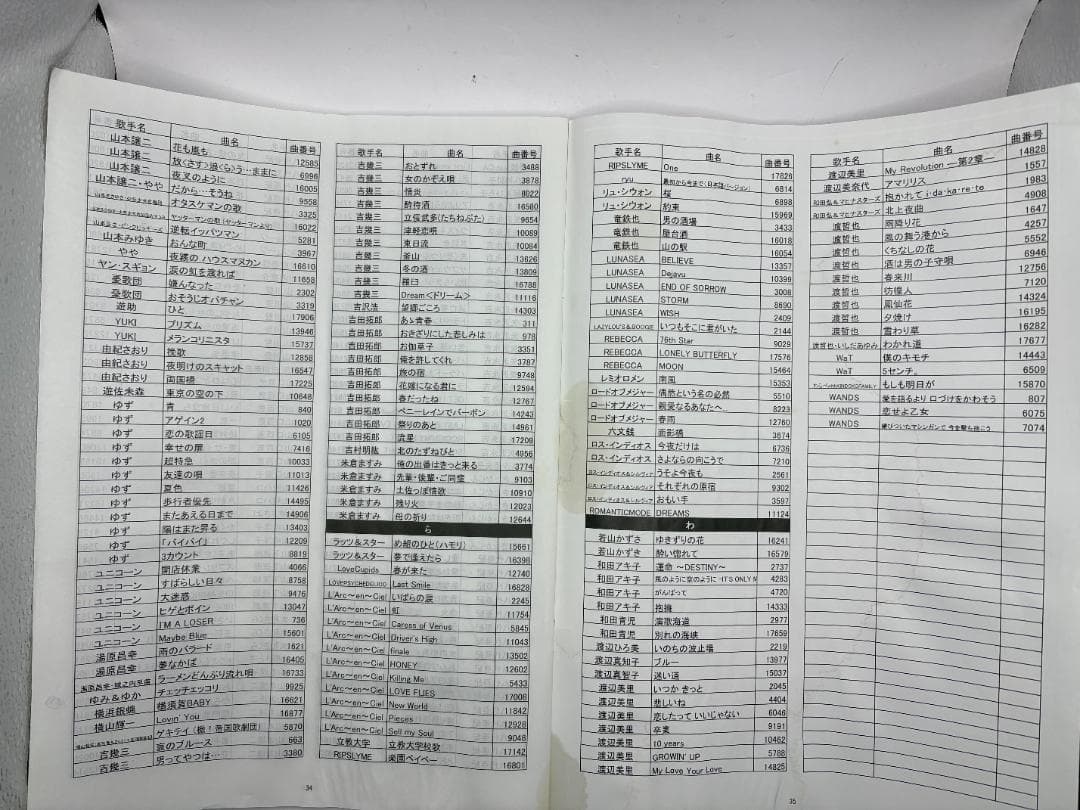 歌手名 曲名 曲番号
山本譲二 花も嵐も 12585
山本譲二 放(さす)浪(ら)う…ままに 6996
山本譲二 夜叉のように 16005
山本譲二・やや だから…そうね 9558
オタスケマンの歌 3325
ヤッターマンの歌(ヤッターマンより) 16022
逆転イッパツマン 5281
山本みゆき おんな町 3967
やや 夜霧の ハウスマヌカン 16610
ヤン・スギョン 涙の虹を渡れば 11658
憂歌団 嫌んなった 2302
憂歌団 おそうじオバチャン 3319
遊助 ひと 17906
YUKI プリズム 13946
YUKI メランコリニスタ 15737
由紀さおり 挽歌 12858
由紀さおり 夜明けのスキャット 16547
由紀さおり 両国橋 17225
遊佐未森 東京の空の下 10648
ゆず 青 840
ゆず アゲイン2 1020
ゆず 恋の歌謡日 6105
ゆず 幸せの扉 7416
ゆず 超特急 10033
ゆず 友達の唄 11013
ゆず 夏色 11426
ゆず 歩行者優先 14495
ゆず またあえる日まで 14906
ゆず 陽はまた昇る 13403
ゆず 「バイバイ」 12209
ゆず 3カウント 8819
ユニコーン 開店休業 4066
ユニコーン すばらしい日々 8758
ユニコーン 大迷惑 9476
ユニコーン ヒゲとボイン 13047
ユニコーン I'M A LOSER 736
ユニコーン Maybe Blue 15601
湯原昌幸 雨のバラード 1621
湯原昌幸 夢なかば 16405
ラーメンどんぶり流れ唄 16733
ゆみ&ゆか チェッチェッコリ 9925
横浜銀蝿 横須賀BABY 16621
横山輝一 Lovin' You 16877
ゲキテイ(檄!帝国歌劇団) 5870
吉幾三 哀のブルース 663
吉幾三 男ってやつは… 3380
34
歌手名 曲名 曲番号
吉幾三 おとずれ 3488
吉幾三 女のかぞえ唄 3878
吉幾三 情炎 8022
吉幾三 酎待酒 16580
吉幾三 立佞武多(たちねぷた) 9654
吉幾三 津軽恋唄 10089
吉幾三 東日流 10084
吉幾三 釜山 13626
吉幾三 冬の酒 13809
吉幾三 羅臼 16788
吉幾三 Dream<ドリーム> 11116
吉沢浩 望郷ごころ 14303
吉田拓郎 あゝ青春 311
吉田拓郎 おきざりにした悲しみは 978
吉田拓郎 お伽草子 3351
吉田拓郎 俺を許してくれ 3787
吉田拓郎 旅の宿 9748
吉田拓郎 花嫁になる君に 12594
吉田拓郎 春だったね 12767
吉田拓郎 ペニーレインでバーボン 14243
吉田拓郎 祭りのあと 14961
吉田拓郎 流星 17209
吉村明紘 北のたずねびと 4956
米倉ますみ 俺の出番はきっと来る 3774
米倉ますみ 先輩・後輩・ご同窓 9103
米倉ますみ 土佐っぽ情歌 10910
米倉ますみ 残り火 12023
米倉ますみ 母の祈り 12644
ら
ラッツ&スター め組のひと(ハモリ) 15661
ラッツ&スター 夢で逢えたら 16398
LoveCupids 春が来た 12740
LOVEPSYCHEDELICO Last Smile 16828
L'Arc〜en〜Ciel いばらの涙 2245
L'Arc〜en〜Ciel 虹 11754
L'Arc〜en〜Ciel Caress of Venus 5845
L'Arc〜en〜Ciel Driver's High 11043
L'Arc〜en〜Ciel finale 13502
L'Arc〜en〜Ciel HONEY 12602
L'Arc〜en〜Ciel Killing Me 5433
L'Arc〜en〜Ciel LOVE FLIES 17008
L'Arc〜en〜Ciel New World 11842
L'Arc〜en〜Ciel Pieces 12928
L'Arc〜en〜Ciel Sell my Soul 9048
立教大学 立教大学校歌 17142
RIPSLYME 楽園ベイベー 16801
歌手名 曲名 曲番号
RIPSLYME One 17828
ryu 最初から今まで(日本語バージョン) 6814
リュ・シウォン 桜 6898
リュ・シウォン 約束 15969
竜鉄也 男の酒場 3433
竜鉄也 屋台酒 16018
竜鉄也 山の駅 16054
LUNASEA BELIEVE 13357
LUNASEA Dejavu 10399
LUNASEA END OF SORROW 3008
LUNASEA STORM 8690
LUNASEA WISH 2409
LAZYLOU'S&BOOGIE いつもそこに君がいた 2144
REBECCA 76th Star 9029
REBECCA LONELY BUTTERFLY 17576
REBECCA MOON 15464
レミオロメン 南風 15353
ロードオブメジャー 偶然という名の必然 5510
ロードオブメジャー 親愛なるあなたへ 8223
ロードオブメジャー 春雨 12760
六文銭 面影橋 3674
ロス・インディオス 今夜だけは 6736
ロス・インディオス さよならの向こうで 7210
ロス・インディオス&シルヴィア うそよ今夜も 2561
ロス・インディオス&シルヴィア それぞれの原宿 9302
ロス・インディオス&シルヴィア おもい手 3597
ROMANTICMODE DREAMS 11124
わ
若山かずさ ゆきずりの花 16241
若山かずさ 酔い惚れて 16579
和田アキ子 運命 〜DESTINY〜 2737
和田アキ子 風のように空のように -IT'S ONLY M 4283
和田アキ子 がんばって 4720
和田アキ子 抱擁 14333
和田青児 演歌海道 2977
和田青児 別れの海峡 17659
渡辺ひろ美 いのちの波止場 2219
渡辺真知子 ブルー 13977
渡辺真智子 迷い道 15037
渡辺美里 いつか きっと 2045
渡辺美里 悲しいね 4404
渡辺美里 恋したって いいじゃない 6046
渡辺美里 卒業 9191
渡辺美里 10 years 10462
渡辺美里 GROWIN' UP 5788
渡辺美里 My Love Your Love 14825
35
歌手名 曲名 曲番号
渡辺美里 My Revolution ―第2章― 14828
渡辺美奈代 アマリリス 1557
和田弘&マヒナスターズ 抱かれて i・da・ka・re・te 1983
和田弘&マヒナスターズ 北上夜曲 4908
渡哲也 雨降り花 1647
渡哲也 風の舞う港から 4257
渡哲也 くちなしの花 5552
渡哲也 酒は男の子守唄 6946
渡哲也 春来川 12756
渡哲也 彷徨人 7120
渡哲也 鳳仙花 14324
渡哲也 夕焼け 16195
渡哲也 雪わり草 16282
渡哲也・いしだあゆみ わかれ道 17677
WaT 僕のキモチ 14443
WaT 5センチ。 6509
もしも明日が 15870
WANDS 愛を語るより口づけをかわそう 807
WANDS 恋せよ乙女 6075
WANDS 錆びついたマシンガンで今を撃ち抜こう 7074